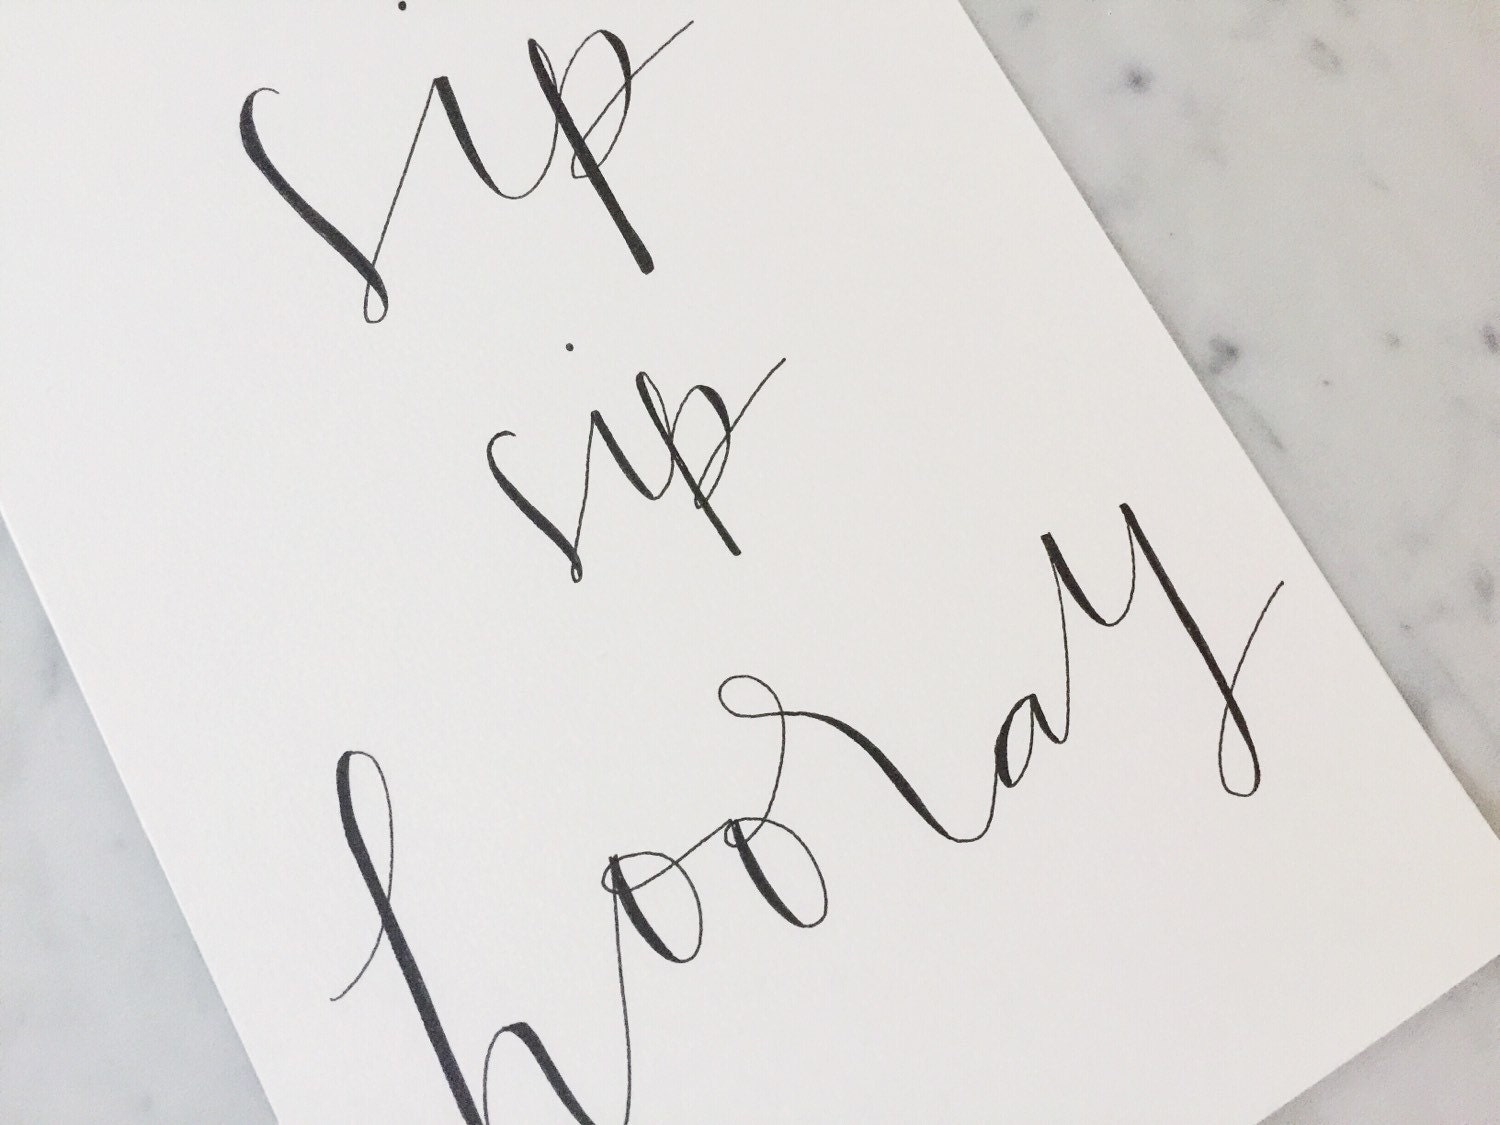 sip
sip
hooray